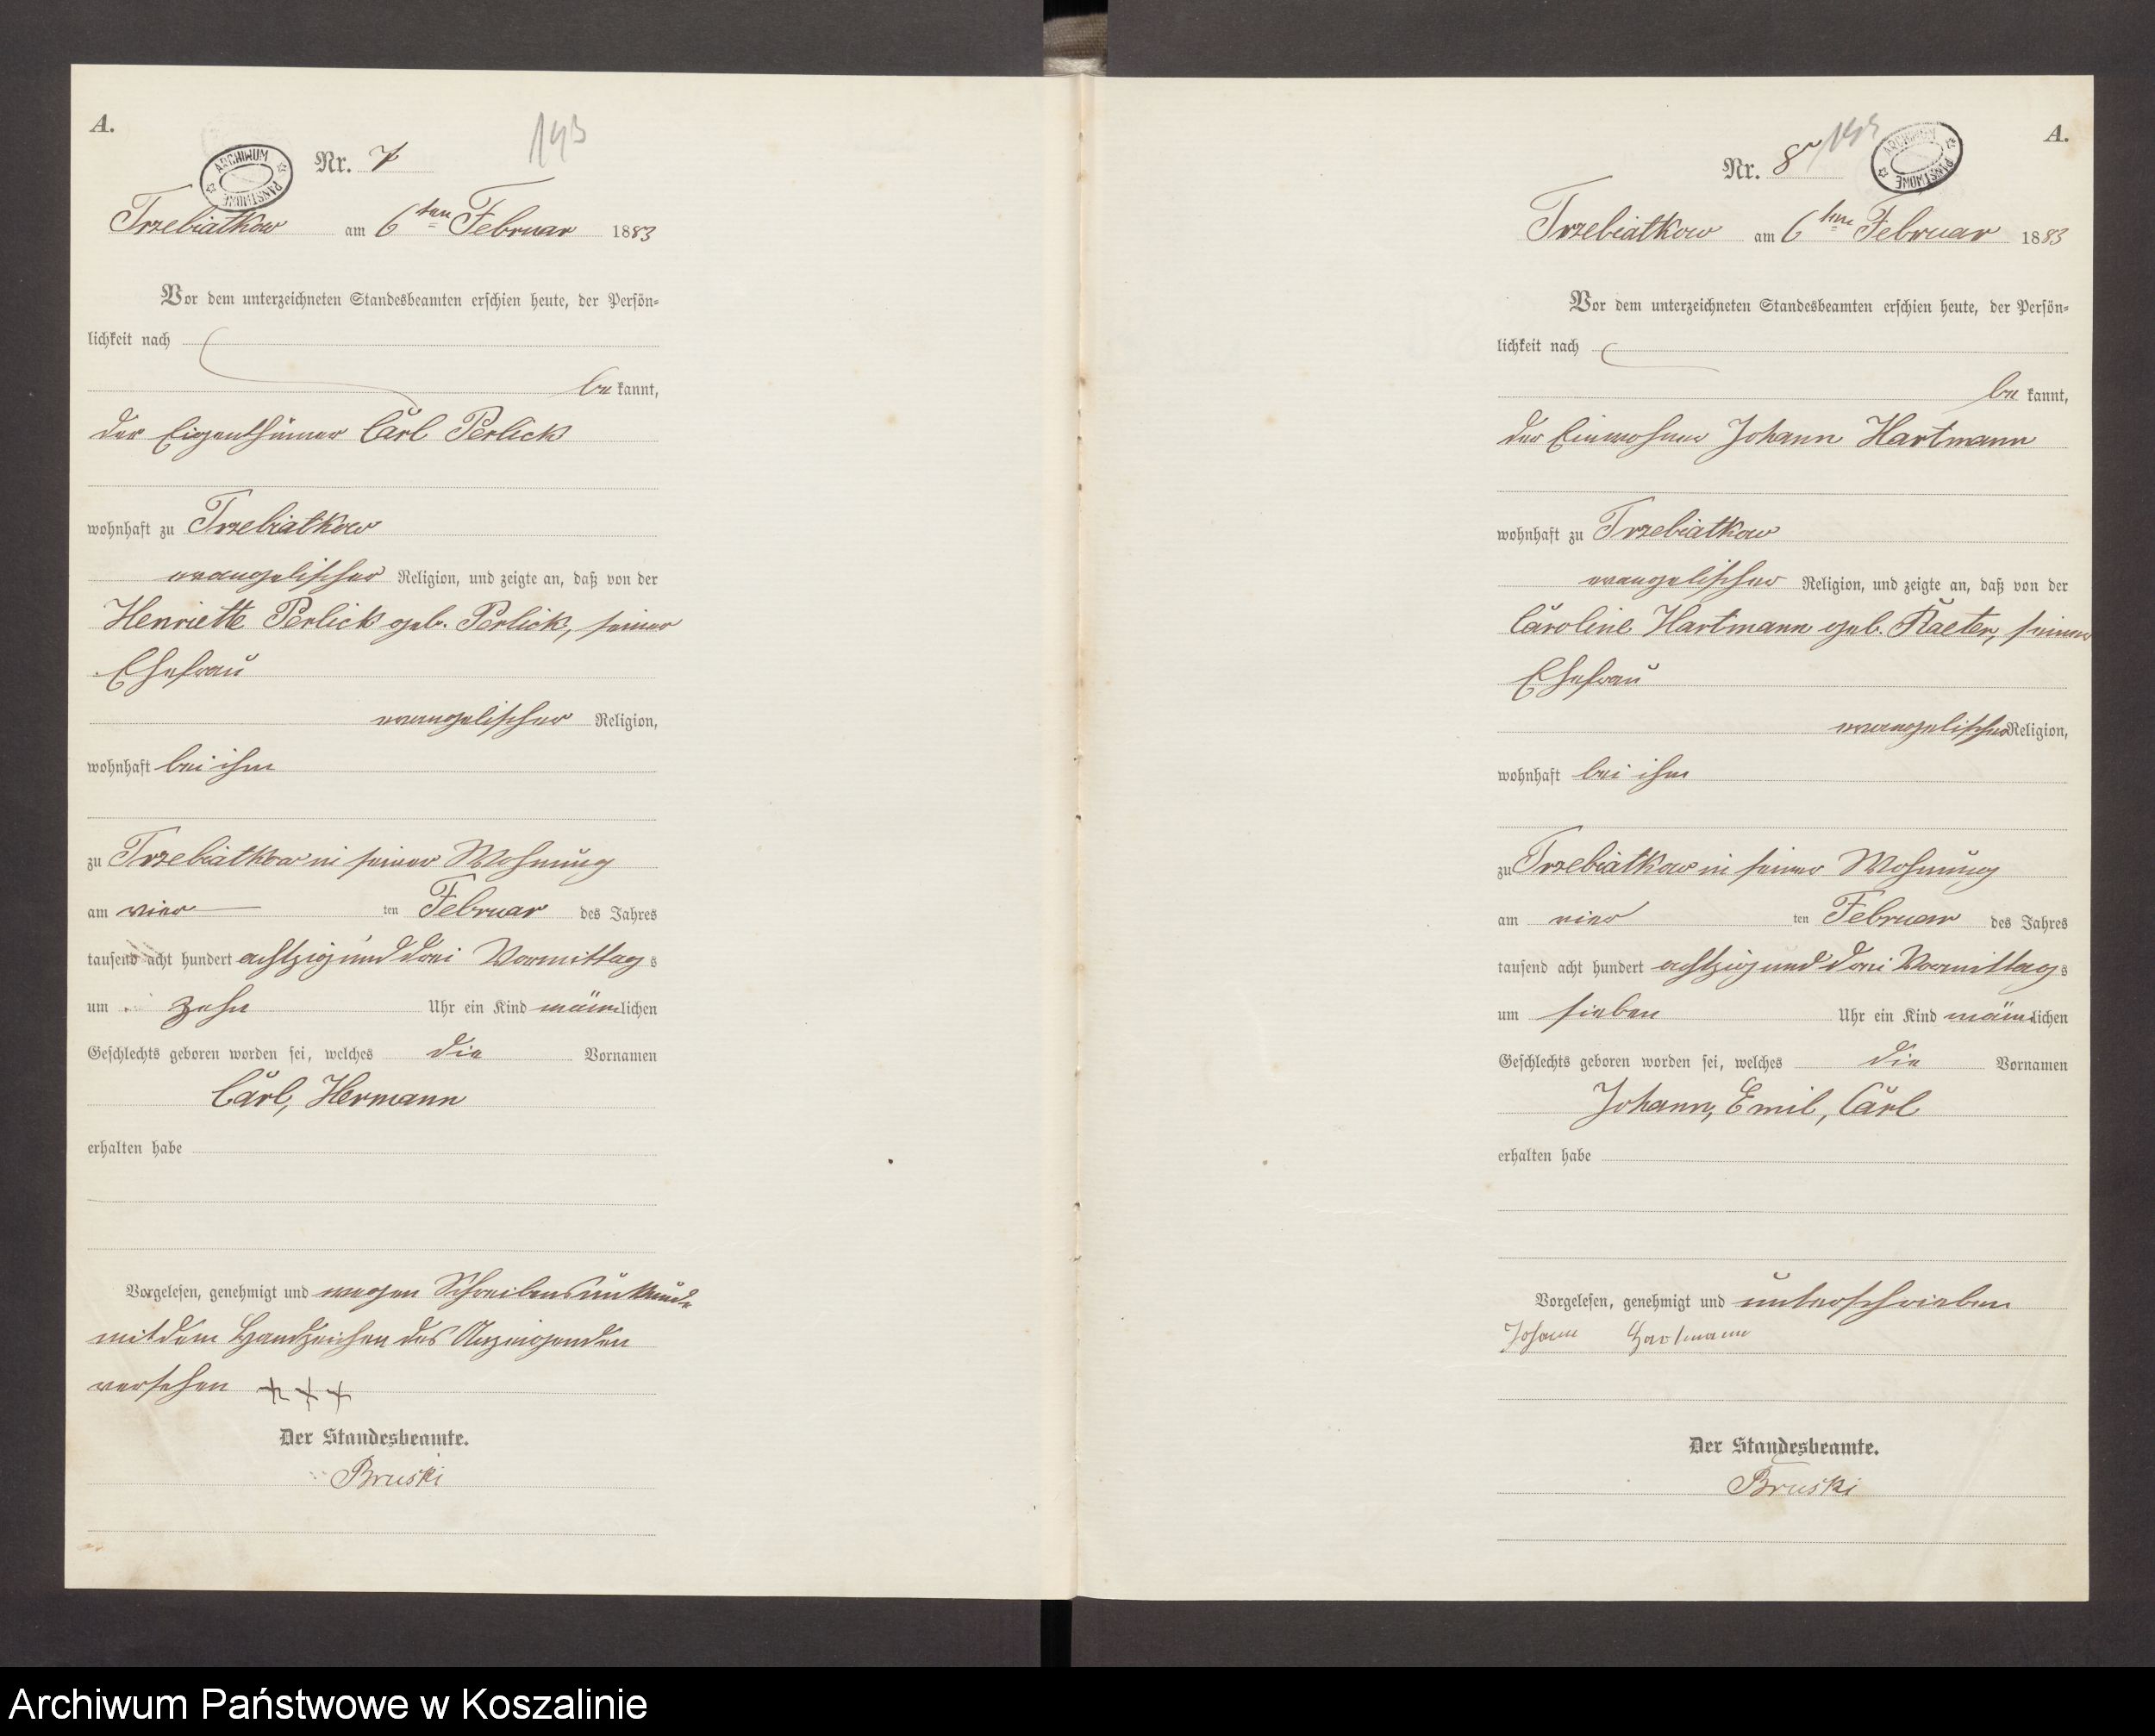 A.
Nr. 7
193
ARCHIWUM PAŃSTWOWE
Trzebiatkow am 6ten Februar 1883
Vor dem unterzeichneten Standesbeamten erschien heute, der Persön=
lichkeit nach
be kannt,
der Eigenthümer Carl Perlick
wohnhaft zu Trzebiatkow
evangelischer Religion, und zeigte an, daß von der
Henriette Perlick geb. Perlick, seiner
Ehefrau
evangelischer Religion,
wohnhaft bei ihm
zu Trzebiatkow in seiner Wohnung
am vier ten Februar des Jahres
tausend acht hundert achtzig und drei Vormittag s
um zehn Uhr ein Kind männlichen
Geschlechts geboren worden sei, welches die Vornamen
Carl, Hermann
erhalten habe
Vorgelesen, genehmigt und wegen Schreibensunkunde
mit dem Handzeichen des Anzeigenden
versehen +++
Der Standesbeamte.
Bruski
A.
Nr. 8
ARCHIWUM PAŃSTWOWE
Trzebiatkow am 6ten Februar 1883
Vor dem unterzeichneten Standesbeamten erschien heute, der Persön=
lichkeit nach
be kannt,
der Einwohner Johann Hartmann
wohnhaft zu Trzebiatkow
evangelischer Religion, und zeigte an, daß von der
Caroline Hartmann geb. seiner
Ehefrau
evangelischer Religion,
wohnhaft bei ihm
zu Trzebiatkow in seiner Wohnung
am vier ten Februar des Jahres
tausend acht hundert achtzig und drei Vormittag s
um sieben Uhr ein Kind männlichen
Geschlechts geboren worden sei, welches die Vornamen
Johann, Emil, Carl
erhalten habe
Vorgelesen, genehmigt und unterschrieben
Johann Hartmann
Der Standesbeamte.
Bruski
Archiwum Państwowe w Koszalinie